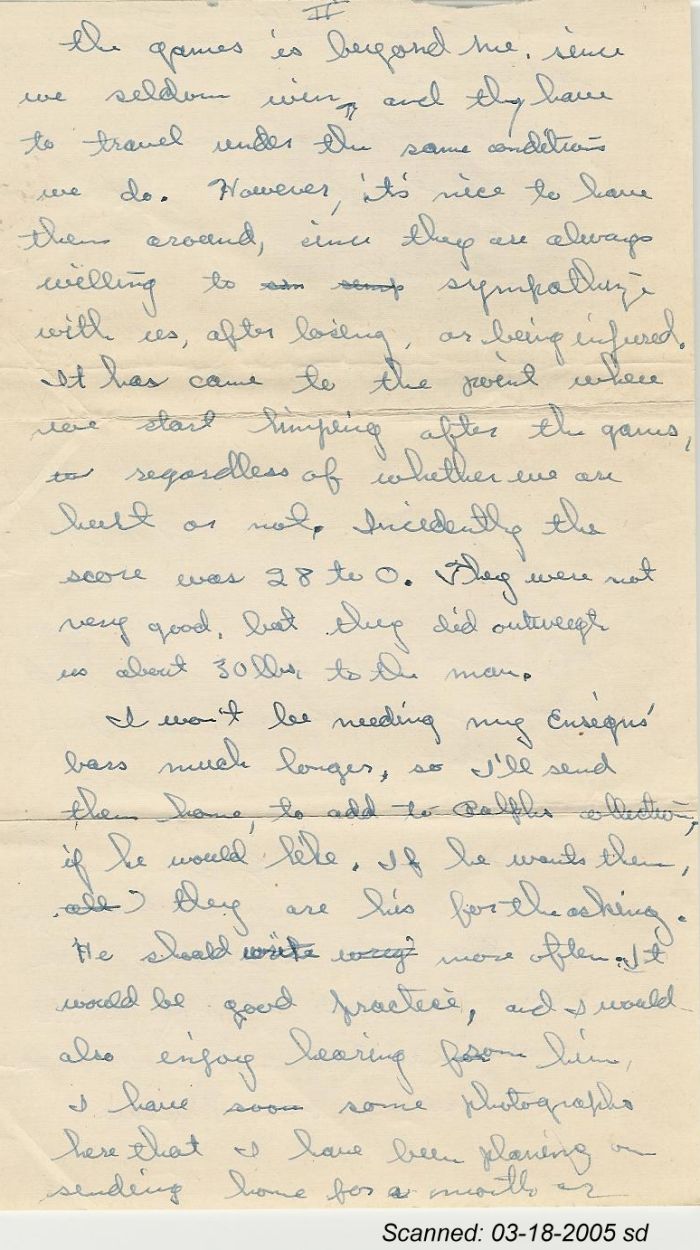 II
the games is beyond me, since
we seldom win, and they have
to travel under the same conditions
we do. However, it's nice to have
them around, since they are always
willing to sympathize
with us, after losing, or being injured.
It has come to the point where
we start limping after the games,
to regardless of whether we are
hurt or not. Incidently the
score was 28 to 0. They were not
very good, but they did outweigh
us about 30 lbs. to the man.
I won't be needing my Ensigns'
bars much longer, so I'll send
them home, to add to Ralphs collection,
if he would like. If he wants them,
all) they are his for the asking.
He should write more often. It
would be good practice, and I would
also enjoy hearing from him.
I have soon some photographs
here that I have been planing on
sending home for a month or
Scanned: 03-18-2005 sd